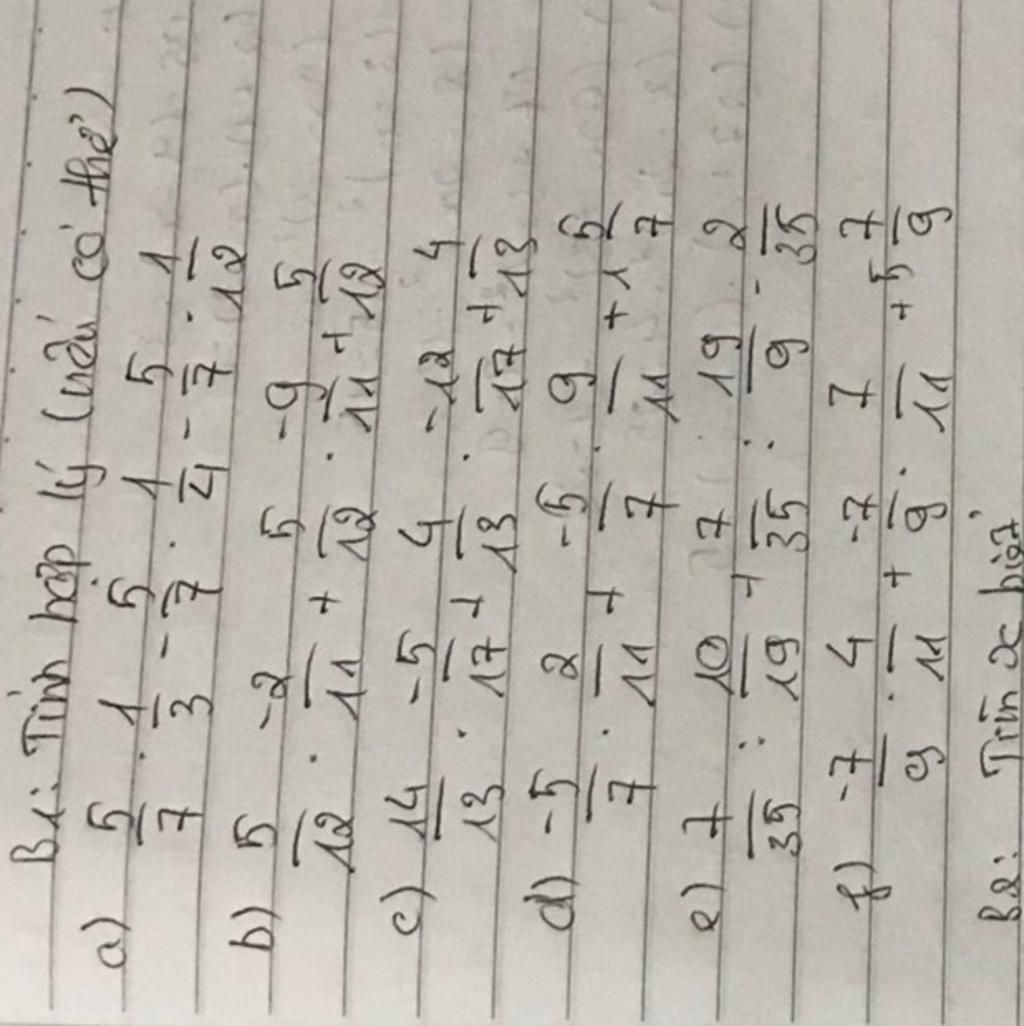 B1: Tính hợp lý (nếu có thể)
a) 5/7 . 1/3 - 5/7 . 1/4 - 5/7 . 1/12
b) 5/12 . -2/11 + 5/12 . -9/11 + 5/12
c) 14/13 . -5/17 + 4/13 . -12/17 + 4/13
d) -5/7 . 2/11 + -5/7 . 9/11 + 1 5/7
e) 7/35 : 10/19 + 7/35 : 19/9 . 2/35
f) -7/9 . 4/11 + -7/9 . 7/11 + 5 7/9
B2: Tìm x biết